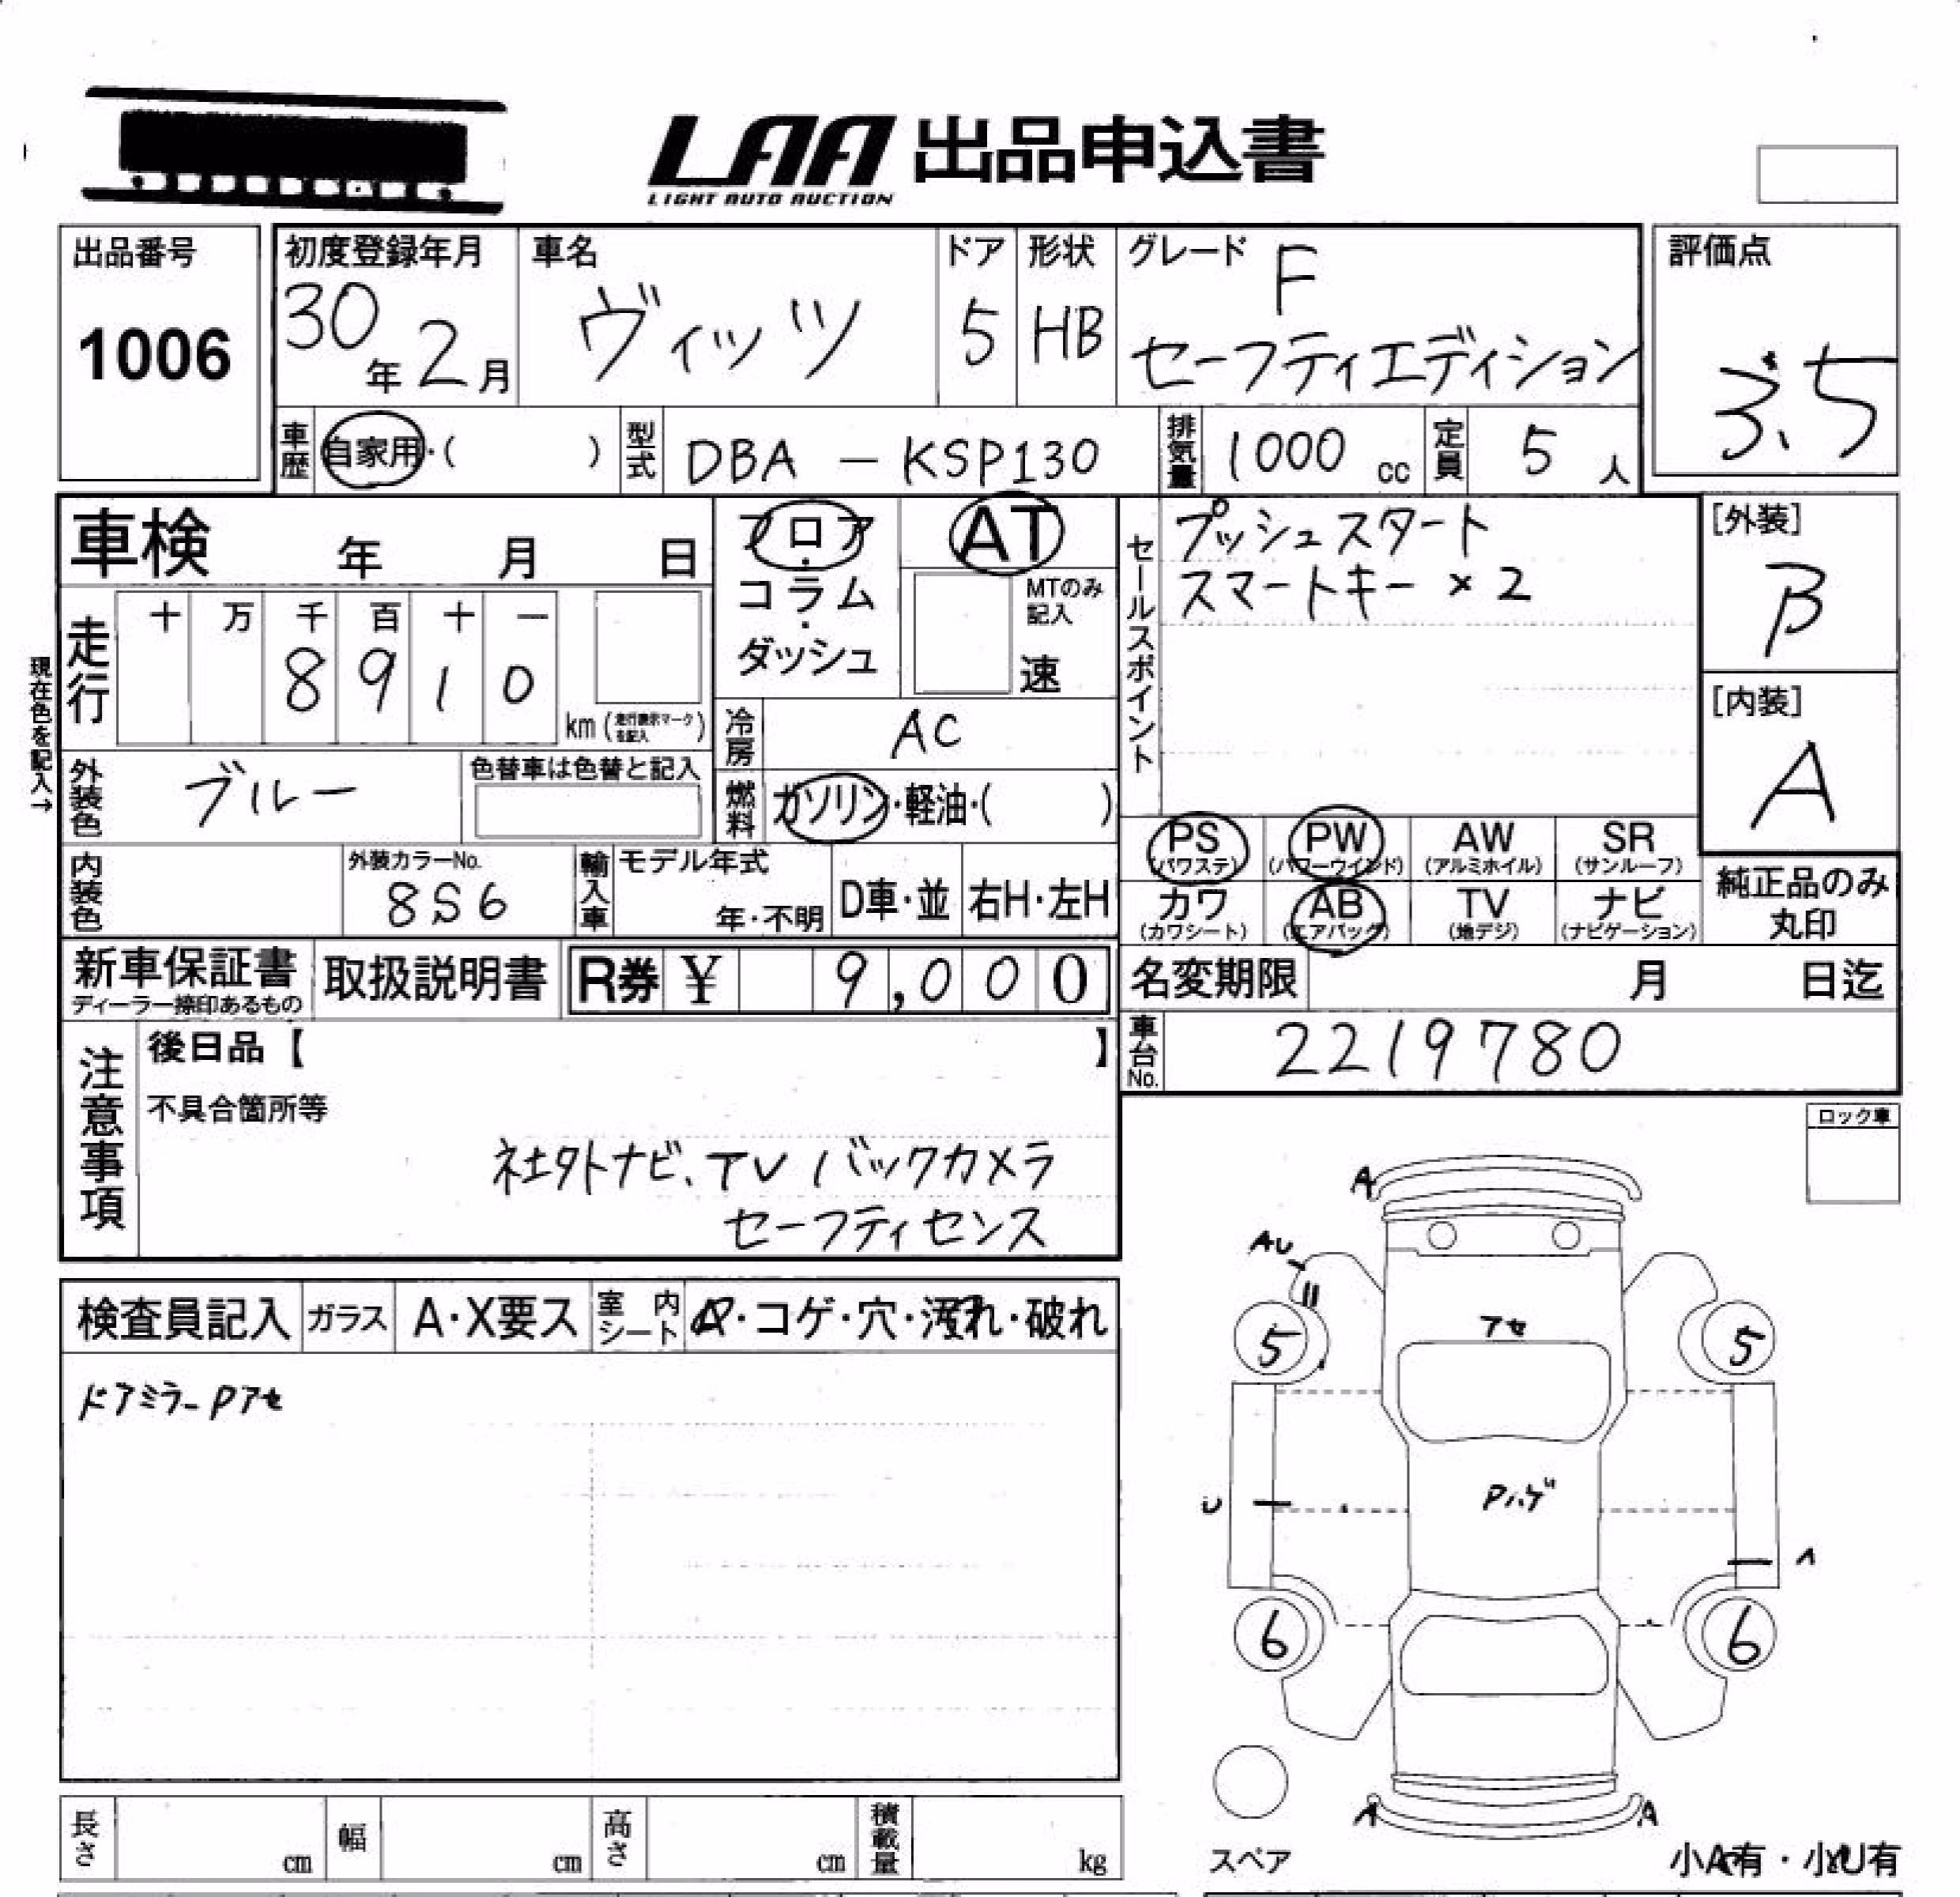 LAA 出品申込書
LIGHT AUTO AUCTION
出品番号
1006
初度登録年月
30年2月
車名
ヴィッツ
ドア
5
形状
HB
グレード
F
セーフティエディション
評価点
3.5
車歴
自家用・( )
型式
DBA - KSP130
排気量
1000 cc
定員
5 人
車検 年 月 日
フロア・
コラム・
ダッシュ
AT
MTのみ
記入
速
セールスポイント
プッシュスタート
スマートキー ×2
[外装]
B
[内装]
A
現在色を記入→
走行
十 万 千 百 十 一
8 9 1 0
km (走行表示マークを記入)
冷房
AC
外装色
ブルー
色替車は色替と記入
燃料
ガソリン・軽油・( )
内装色
外装カラーNo.
8S6
輸入車
モデル年式
年・不明
D車・並
右H・左H
PS
(パワステ)
PW
(パワーウインド)
AW
(アルミホイル)
SR
(サンルーフ)
カワ
(カワシート)
AB
(エアバッグ)
TV
(地デジ)
ナビ
(ナビゲーション)
純正品のみ
丸印
新車保証書
ディーラー捺印あるもの
取扱説明書
R券 ¥ 9,000
名変期限 月 日迄
車台No.
2219780
注意事項
後日品【 】
不具合箇所等
社外ナビ、TV バックカメラ
セーフティセンス
ロック車
検査員記入
ガラス
A・X要ス
室内
シート
・コゲ・穴・汚れ・破れ
ドアミラーPアセ
A
AU
U
アセ
5
5
U
Pハゲ
A
6
6
A
A
スペア
小A有・小U有
長さ
cm
幅
cm
高さ
cm
積載量
kg